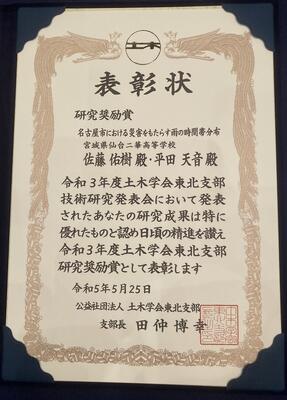 土木
表彰状
研究奨励賞
名古屋市における災害をもたらす雨の時間帯分布
宮城県仙台二華高等学校
佐藤佑樹殿・平田天音殿
令和3年度土木学会東北支部
技術研究発表会において発表
されたあなたの研究成果は特に
優れたものと認め日頃の精進を讃え
令和3年度土木学会東北支部
研究奨励賞として表彰します
令和5年5月25日
公益社団法人 土木学会東北支部
支部長 田仲博幸